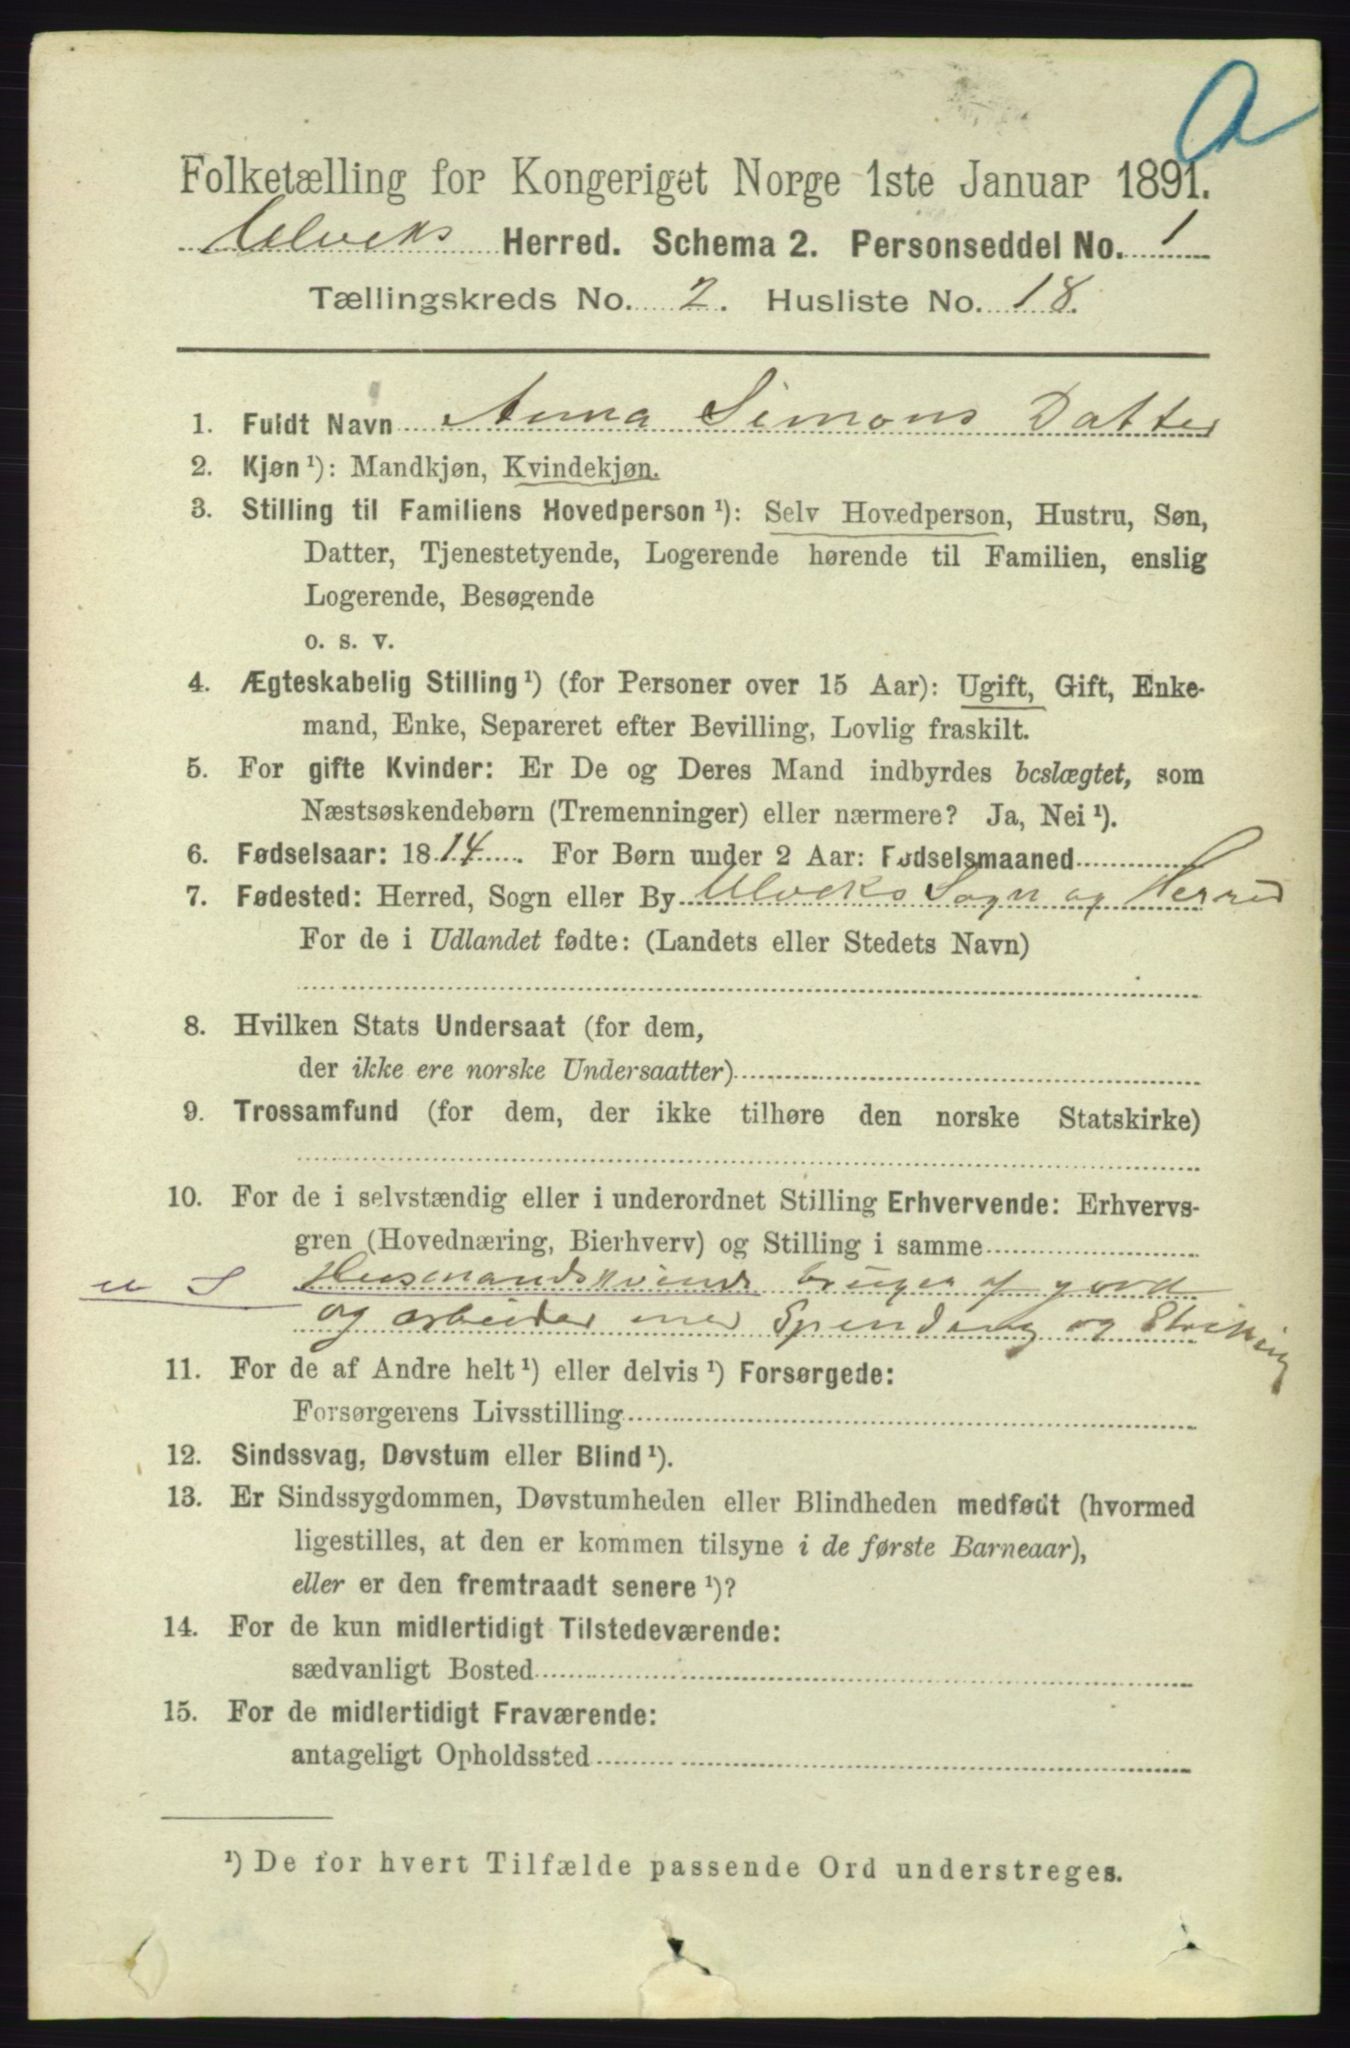 a
Folketælling for Kongeriget Norge 1ste Januar 1891.
Ulviks Herred. Schema 2. Personseddel No. 1
Tællingskreds No. 2. Husliste No. 18.
1. Fuldt Navn Anna Simons Datter
2. Kjøn ¹): Mandkjøn, Kvindekjøn.
3. Stilling til Familiens Hovedperson ¹): Selv Hovedperson, Hustru, Søn,
Datter, Tjenestetyende, Logerende hørende til Familien, enslig
Logerende, Besøgende
o. s. v.
4. Ægteskabelig Stilling ¹) (for Personer over 15 Aar): Ugift, Gift, Enke-
mand, Enke, Separeret efter Bevilling, Lovlig fraskilt.
5. For gifte Kvinder: Er De og Deres Mand indbyrdes beslægtet, som
Næstsøskendebørn (Tremenninger) eller nærmere? Ja, Nei ¹).
6. Fødselsaar: 1814. For Børn under 2 Aar: Fødselsmaaned
7. Fødested: Herred, Sogn eller By Ulviks Sogn og Herred
For de i Udlandet fødte: (Landets eller Stedets Navn)
8. Hvilken Stats Undersaat (for dem,
der ikke ere norske Undersaatter)
9. Trossamfund (for dem, der ikke tilhøre den norske Statskirke)
10. For de i selvstændig eller i underordnet Stilling Erhvervende: Erhvervs-
gren (Hovednæring, Bierhverv) og Stilling i samme
Husmandskvinde bruger af jord
og arbeider med Spinding og Strikking
11. For de af Andre helt ¹) eller delvis ¹) Forsørgede:
Forsørgerens Livsstilling
12. Sindssvag, Døvstum eller Blind ¹).
13. Er Sindssygdommen, Døvstumheden eller Blindheden medfødt (hvormed
ligestilles, at den er kommen tilsyne i de første Barneaar),
eller er den fremtraadt senere ¹)?
14. For de kun midlertidigt Tilstedeværende:
sædvanligt Bosted
15. For de midlertidigt Fraværende:
antageligt Opholdssted
¹) De for hvert Tilfælde passende Ord understreges.